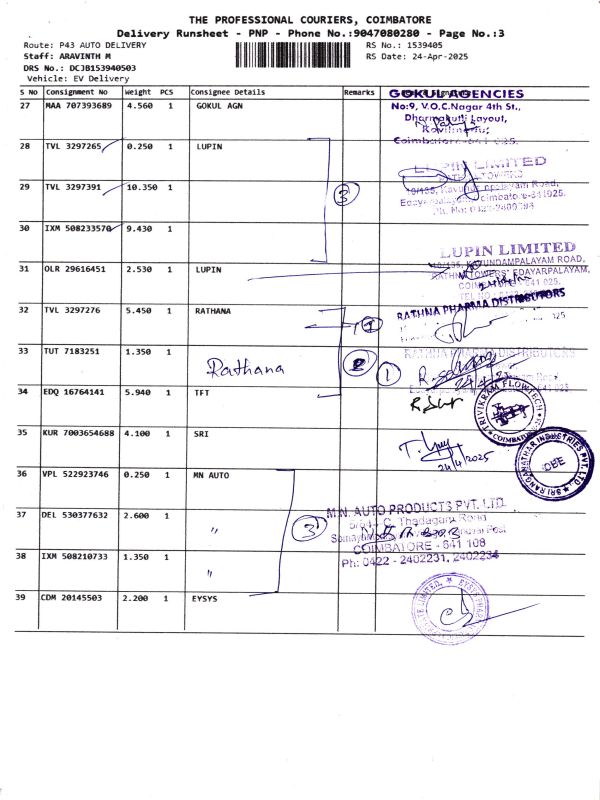 THE PROFESSIONAL COURIERS, COIMBATORE
Delivery Runsheet - PNP - Phone No.:9047080280 - Page No.:3
Route: P43 AUTO DELIVERY
RS No.: 1539405
Staff: ARAVINTH M
RS Date: 24-Apr-2025
DRS No.: DCJB153940503
Vehicle: EV Delivery
S No Consignment No Weight PCS Consignee Details Remarks
27 MAA 707393689 4.560 1 GOKUL AGN
GOKUL AGENCIES
No:9, V.O.C.Nagar 4th St.,
Dharmakutti Layout,
28 TVL 3297265 0.250 1 LUPIN
LUPIN LIMITED
29 TVL 3297391 10.350 1
3
30 IXM 508233570 9.430 1
31 OLR 29616451 2.530 1 LUPIN
LUPIN LIMITED
RATHNA TOWERS' EDAYARPALAYAM,
32 TVL 3297276 5.450 1 RATHANA
RATHNA PHARMA DISTRIBUTORS
33 TUT 7183251 1.350 1
Rathana
2
1
RATHNA PHARMA DISTRIBUTORS
34 EDQ 16764141 5.940 1 TFT
TRIVIKRAM FLOWTECH
COIMBATORE
35 KUR 7003654688 4.100 1 SRI
24/4/2025
SRI RANGANATHAR INDUSTRIES PVT. LTD.
CBE
36 VPL 522923746 0.250 1 MN AUTO
37 DEL 530377632 2.600 1 "
3
M.N. AUTO PRODUCTS PVT. LTD.
COIMBATORE - 641 108
Ph: 0422 - 2402231, 2402234
38 IXM 508210733 1.350 1 "
39 CDM 20145503 2.200 1 EYSYS